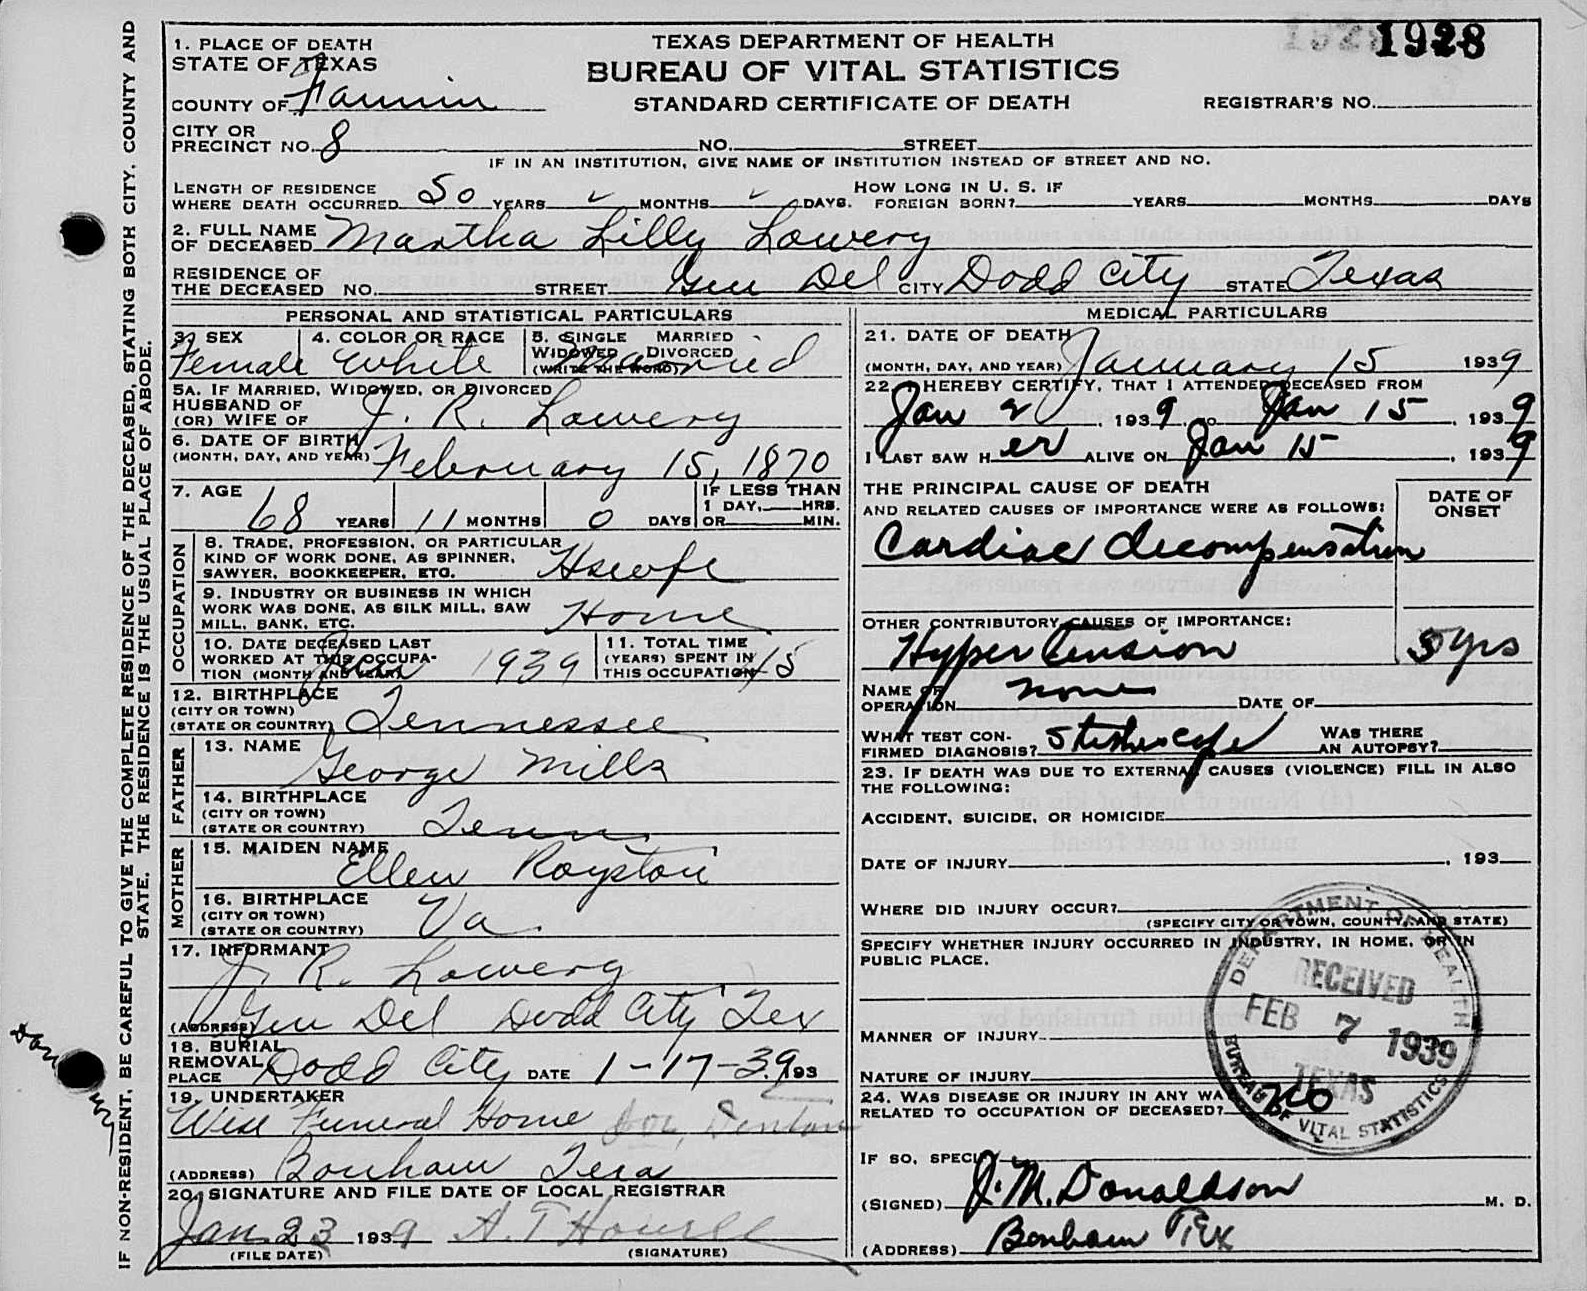 1928
1928
TEXAS DEPARTMENT OF HEALTH
BUREAU OF VITAL STATISTICS
STANDARD CERTIFICATE OF DEATH
REGISTRAR'S NO.
1. PLACE OF DEATH
STATE OF TEXAS
COUNTY OF Fannin
CITY OR
PRECINCT NO. 8 NO. STREET
IF IN AN INSTITUTION, GIVE NAME OF INSTITUTION INSTEAD OF STREET AND NO.
LENGTH OF RESIDENCE HOW LONG IN U. S. IF
WHERE DEATH OCCURRED 50 YEARS MONTHS DAYS. FOREIGN BORN? YEARS MONTHS DAYS
2. FULL NAME
OF DECEASED Martha Lilly Lowery
RESIDENCE OF
THE DECEASED NO. STREET Gen Del CITY Dodd City STATE Texas
PERSONAL AND STATISTICAL PARTICULARS
3. SEX 4. COLOR OR RACE 5. SINGLE MARRIED
WIDOWED DIVORCED
(WRITE THE WORD)
Female White Married
5A. IF MARRIED, WIDOWED, OR DIVORCED
HUSBAND OF
(OR) WIFE OF J. R. Lowery
6. DATE OF BIRTH
(MONTH, DAY, AND YEAR) February 15, 1870
7. AGE 68 YEARS 11 MONTHS 0 DAYS IF LESS THAN
1 DAY, HRS.
OR MIN.
OCCUPATION
8. TRADE, PROFESSION, OR PARTICULAR
KIND OF WORK DONE, AS SPINNER,
SAWYER, BOOKKEEPER, ETC. Hsewfe
9. INDUSTRY OR BUSINESS IN WHICH
WORK WAS DONE, AS SILK MILL, SAW
MILL, BANK, ETC. Home
10. DATE DECEASED LAST
WORKED AT THIS OCCUPA-
TION (MONTH AND YEAR) Jan 1939
11. TOTAL TIME
(YEARS) SPENT IN
THIS OCCUPATION 15
12. BIRTHPLACE
(CITY OR TOWN)
(STATE OR COUNTRY) Tennessee
FATHER
13. NAME George Mills
14. BIRTHPLACE
(CITY OR TOWN)
(STATE OR COUNTRY) Tenn
MOTHER
15. MAIDEN NAME Ellen Royston
16. BIRTHPLACE
(CITY OR TOWN)
(STATE OR COUNTRY) Va.
17. INFORMANT J. R. Lowery
(ADDRESS) Gen Del Dodd City Tex
18. BURIAL
REMOVAL
PLACE Dodd City DATE 1-17-39 193
19. UNDERTAKER
Wise Funeral Home
(ADDRESS) Bonham Texa
20. SIGNATURE AND FILE DATE OF LOCAL REGISTRAR
Jan 23 1939 A. T Howell
(FILE DATE) (SIGNATURE)
MEDICAL PARTICULARS
21. DATE OF DEATH
(MONTH, DAY, AND YEAR) January 15 1939
22. I HEREBY CERTIFY, THAT I ATTENDED DECEASED FROM
Jan 2, 1939, TO Jan 15, 1939
I LAST SAW H er ALIVE ON Jan 15, 1939
THE PRINCIPAL CAUSE OF DEATH
AND RELATED CAUSES OF IMPORTANCE WERE AS FOLLOWS:
DATE OF
ONSET
Cardiac decompensation
OTHER CONTRIBUTORY CAUSES OF IMPORTANCE:
Hypertension 5 yrs
NAME OF
OPERATION none DATE OF
WHAT TEST CON-
FIRMED DIAGNOSIS? Stethescope WAS THERE
AN AUTOPSY?
23. IF DEATH WAS DUE TO EXTERNAL CAUSES (VIOLENCE) FILL IN ALSO
THE FOLLOWING:
ACCIDENT, SUICIDE, OR HOMICIDE
DATE OF INJURY , 193
WHERE DID INJURY OCCUR?
(SPECIFY CITY OR TOWN, COUNTY, AND STATE)
SPECIFY WHETHER INJURY OCCURRED IN INDUSTRY, IN HOME, OR IN
PUBLIC PLACE.
MANNER OF INJURY
NATURE OF INJURY
24. WAS DISEASE OR INJURY IN ANY WA
RELATED TO OCCUPATION OF DECEASED? No
IF SO, SPECI
(SIGNED) J. M. Donaldson M. D.
(ADDRESS) Bonham Tex
DEPARTMENT OF HEALTH
RECEIVED
FEB 7 1939
TEXAS
BUREAU OF VITAL STATISTICS
IF NON-RESIDENT, BE CAREFUL TO GIVE THE COMPLETE RESIDENCE OF THE DECEASED, STATING BOTH CITY, COUNTY AND
STATE. THE RESIDENCE IS THE USUAL PLACE OF ABODE.